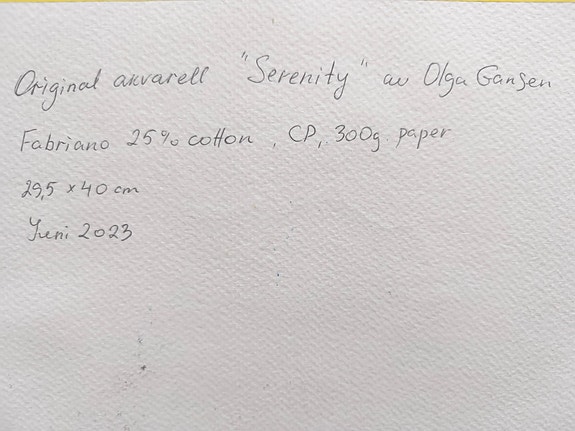 Original akvarell "Serenity" av Olga Gansen
Fabriano 25% cotton, CP, 300g. paper
29,5 x 40 cm
Juni 2023